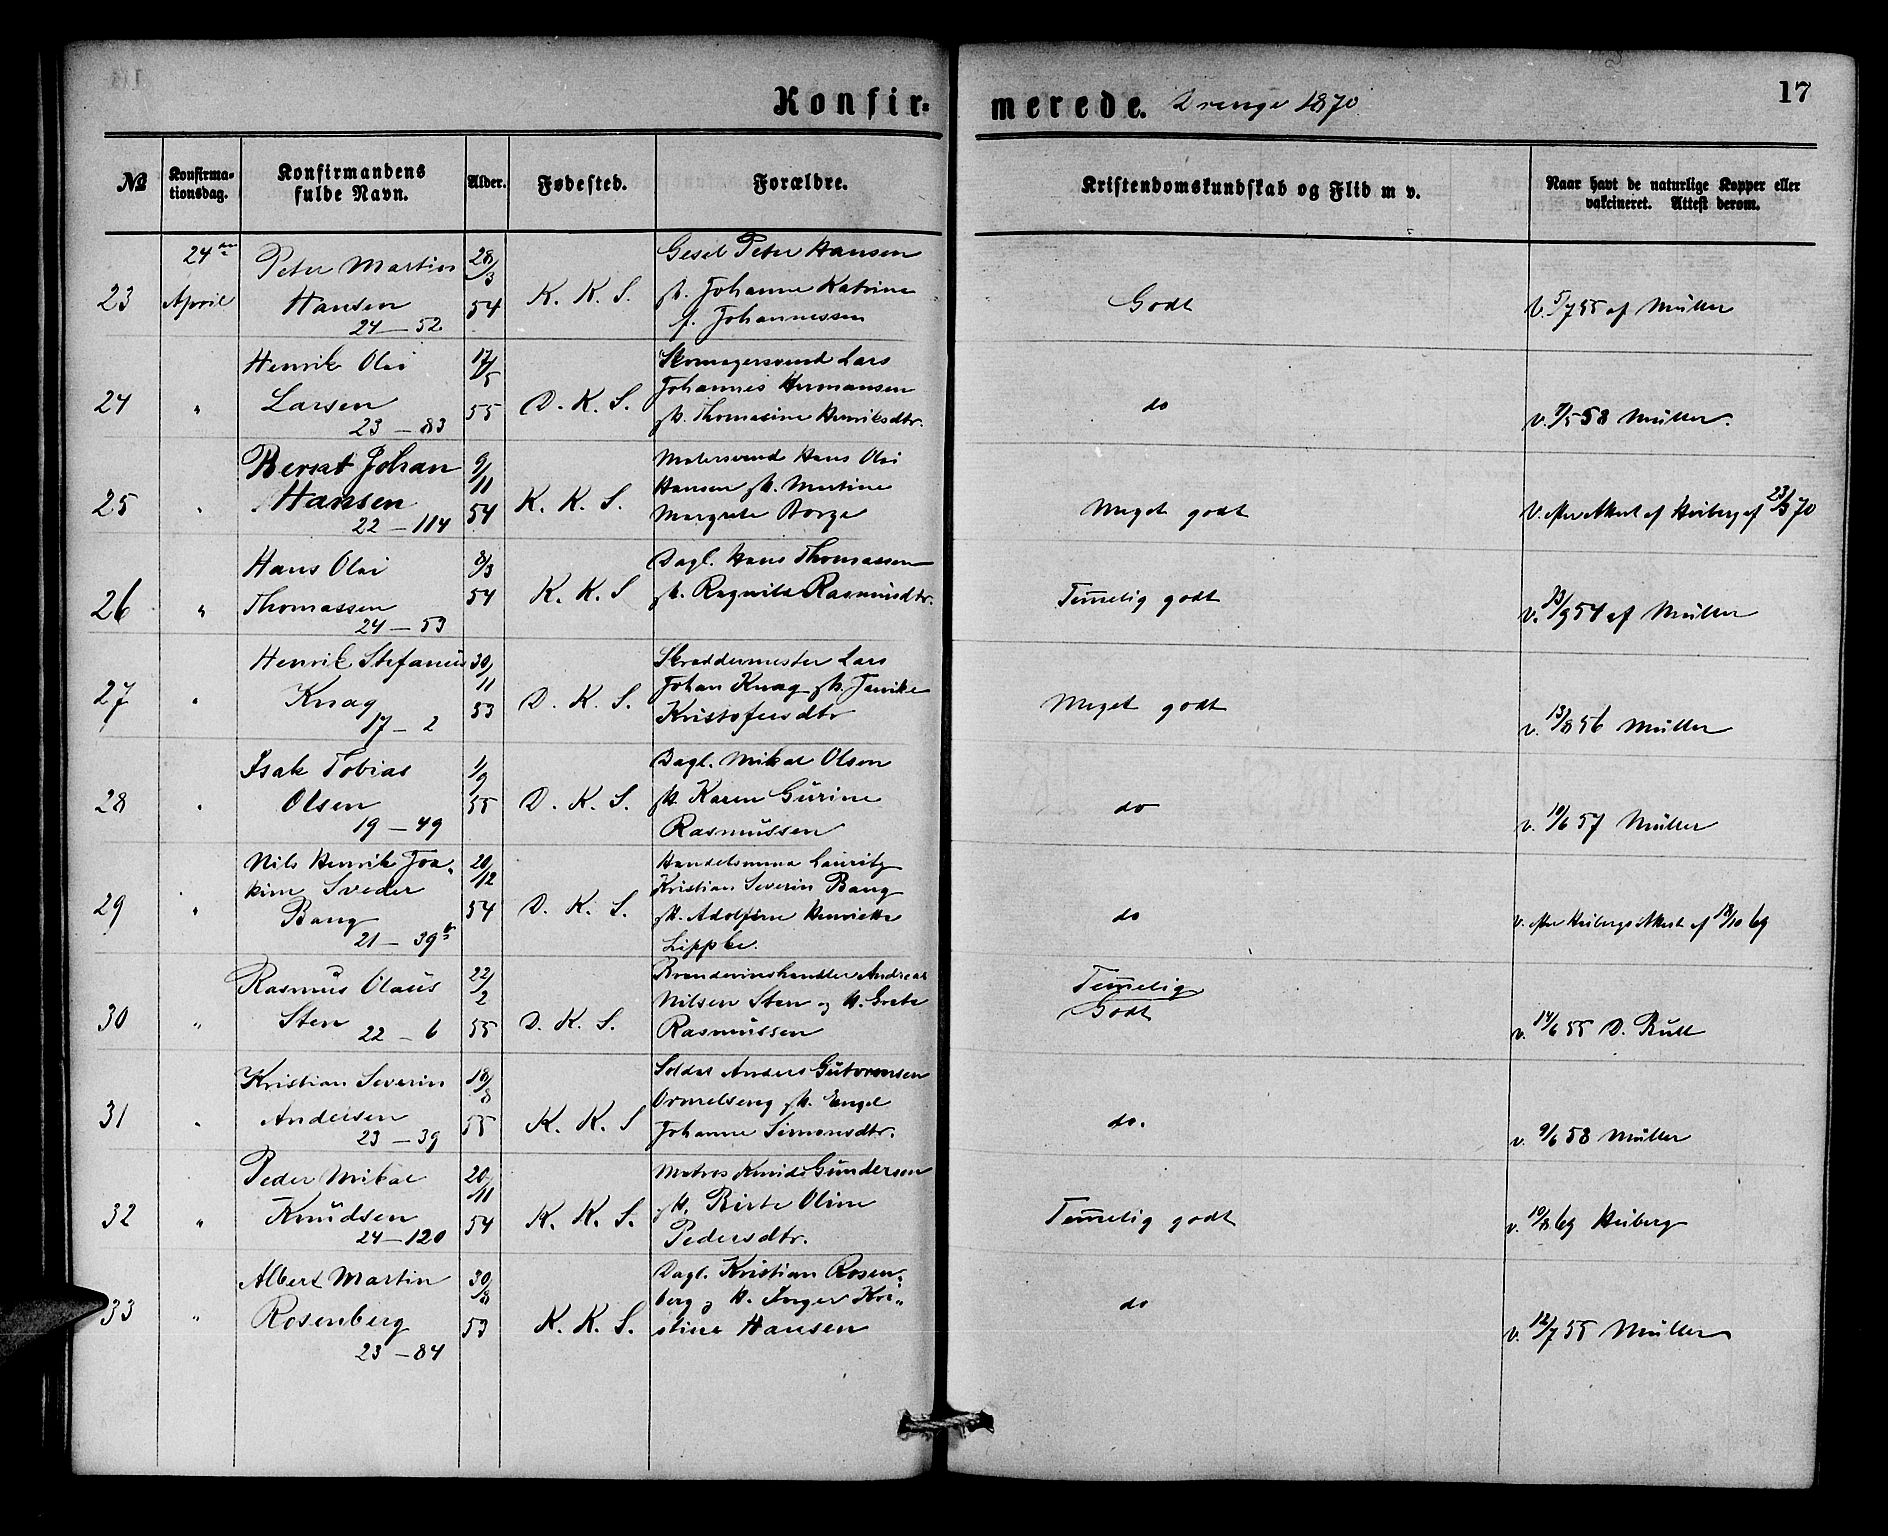 Konfirmerede. Drenge 1870
17
№ Konfirmationsdag. Konfirmandens fulde Navn. Alder. Fødested. Forældre. Kristendomskundskab og Flid m v. Naar havt de naturlige Kopper eller vakcineret. Attest derom.
24de Peter Martin 28/3 Gesel Peter Hansen
23 April Hansen 54 K. K. S. H. Johanne Katrine Godt V. 5/7 55 af Müller
24 — 52 f. Johannessen
Henrik Olai 17/5 Skomagersvend Lars
24 " Larsen 55 D. K. S. Johannes Hermansen do v. 9/5 58 Müller.
23 — 83 H. Thomasine Henriksdtr.
Bernt Johan 9/11 Malersvend Hans Olai
25 " Hansen 54 K. K. S. Hansen H. Martine Meget godt V. efter Attest af Heiberg af 23/3 70
22 — 114 Margrete Borge
Hans Olai 8/3 Dagl. Hans Thomassen
26 " Thomassen 54 K. K. S H. Ragnilda Rasmusdtr. Temelig godt v. 23/9 54 af Müller
24 — 53
Henrik Stefanus 30/11 Skræddermester Lars
27 " Knag 53 D. K. S. Johan Knag H. Janike Meget godt v. 13/8 56 Müller
17 — 2 Kristofersdtr
Isak Tobias 1/9 Dagl. Mikal Olsen
28 " Olsen 55 D. K. S. H. Karen Gurine do v. 10/6 57 Müller
19 — 49 Rasmussen
Nils Henrik Joa- 20/12 Handelsmand Lauritz
kim Sveder Kristian Severin Bang
29 " Bang 54 D. K. S. H. Adolfine Henriette do v. efter Heibergs Attest af 18/10 69
21 — 39 Lippke.
Rasmus Olaus 22/2 Brændevinshandler Andreas Temelig
30 " Sten 55 D. K. S. Nilsen Sten og H. Grete Godt v. 14/6 55 D. Bull
22 — 6 Rasmussen
Kristian Severin 18/8 Soldat Anders Gutormsen
31 " Andersen 55 K. K. S Ormelseng H. Engel do. v. 9/6 58 Müller
23 — 39 Johanne Simonsdtr.
Peder Mikal 20/11 Matros Knud Gundersen
32 " Knudsen 54 K. K. S. H. Birte Oline Temelig godt v. 10/8 69 Heiberg
24 — 120 Pedersdtr.
Albert Martin 30/8 Dagl. Kristian Rosen-
33 " Rosenberg 53 K. K. S. berg og H. Inger Kri- do v. 12/7 55 Müller
23 — 84 stine Hansen